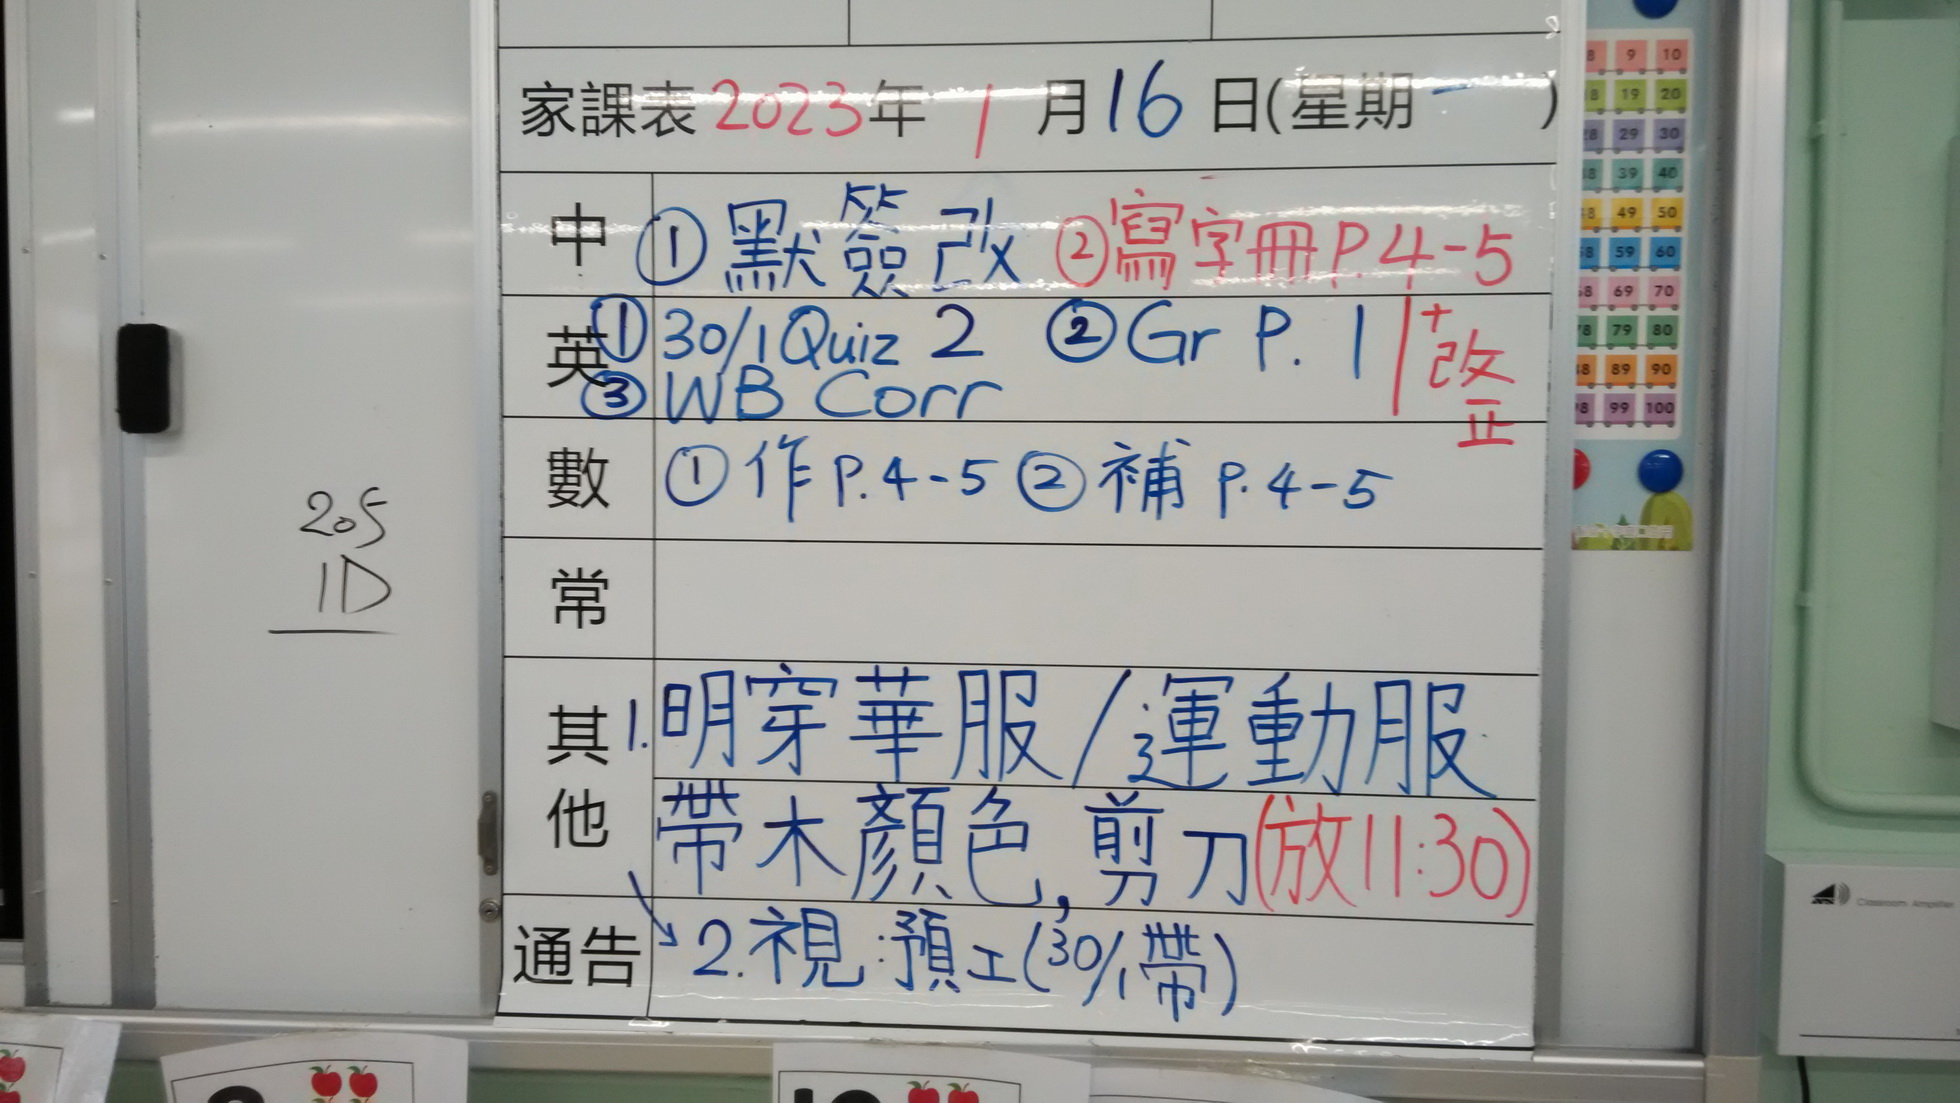 家課表 2023年 1月16日(星期一)
中 ①默簽改 ②寫字冊P.4-5
英 ①30/1 Quiz 2 ②Gr P. 1
③WB Corr
+改正
數 ①作P.4-5 ②補P.4-5
常
其他 1.明穿華服/運動服
帶木顏色,剪刀(放11:30)
通告 2.視:預工(30/1帶)
205
1D
8 9 10
18 19 20
28 29 30
38 39 40
48 49 50
58 59 60
68 69 70
78 79 80
88 89 90
98 99 100
Classroom Amplifier